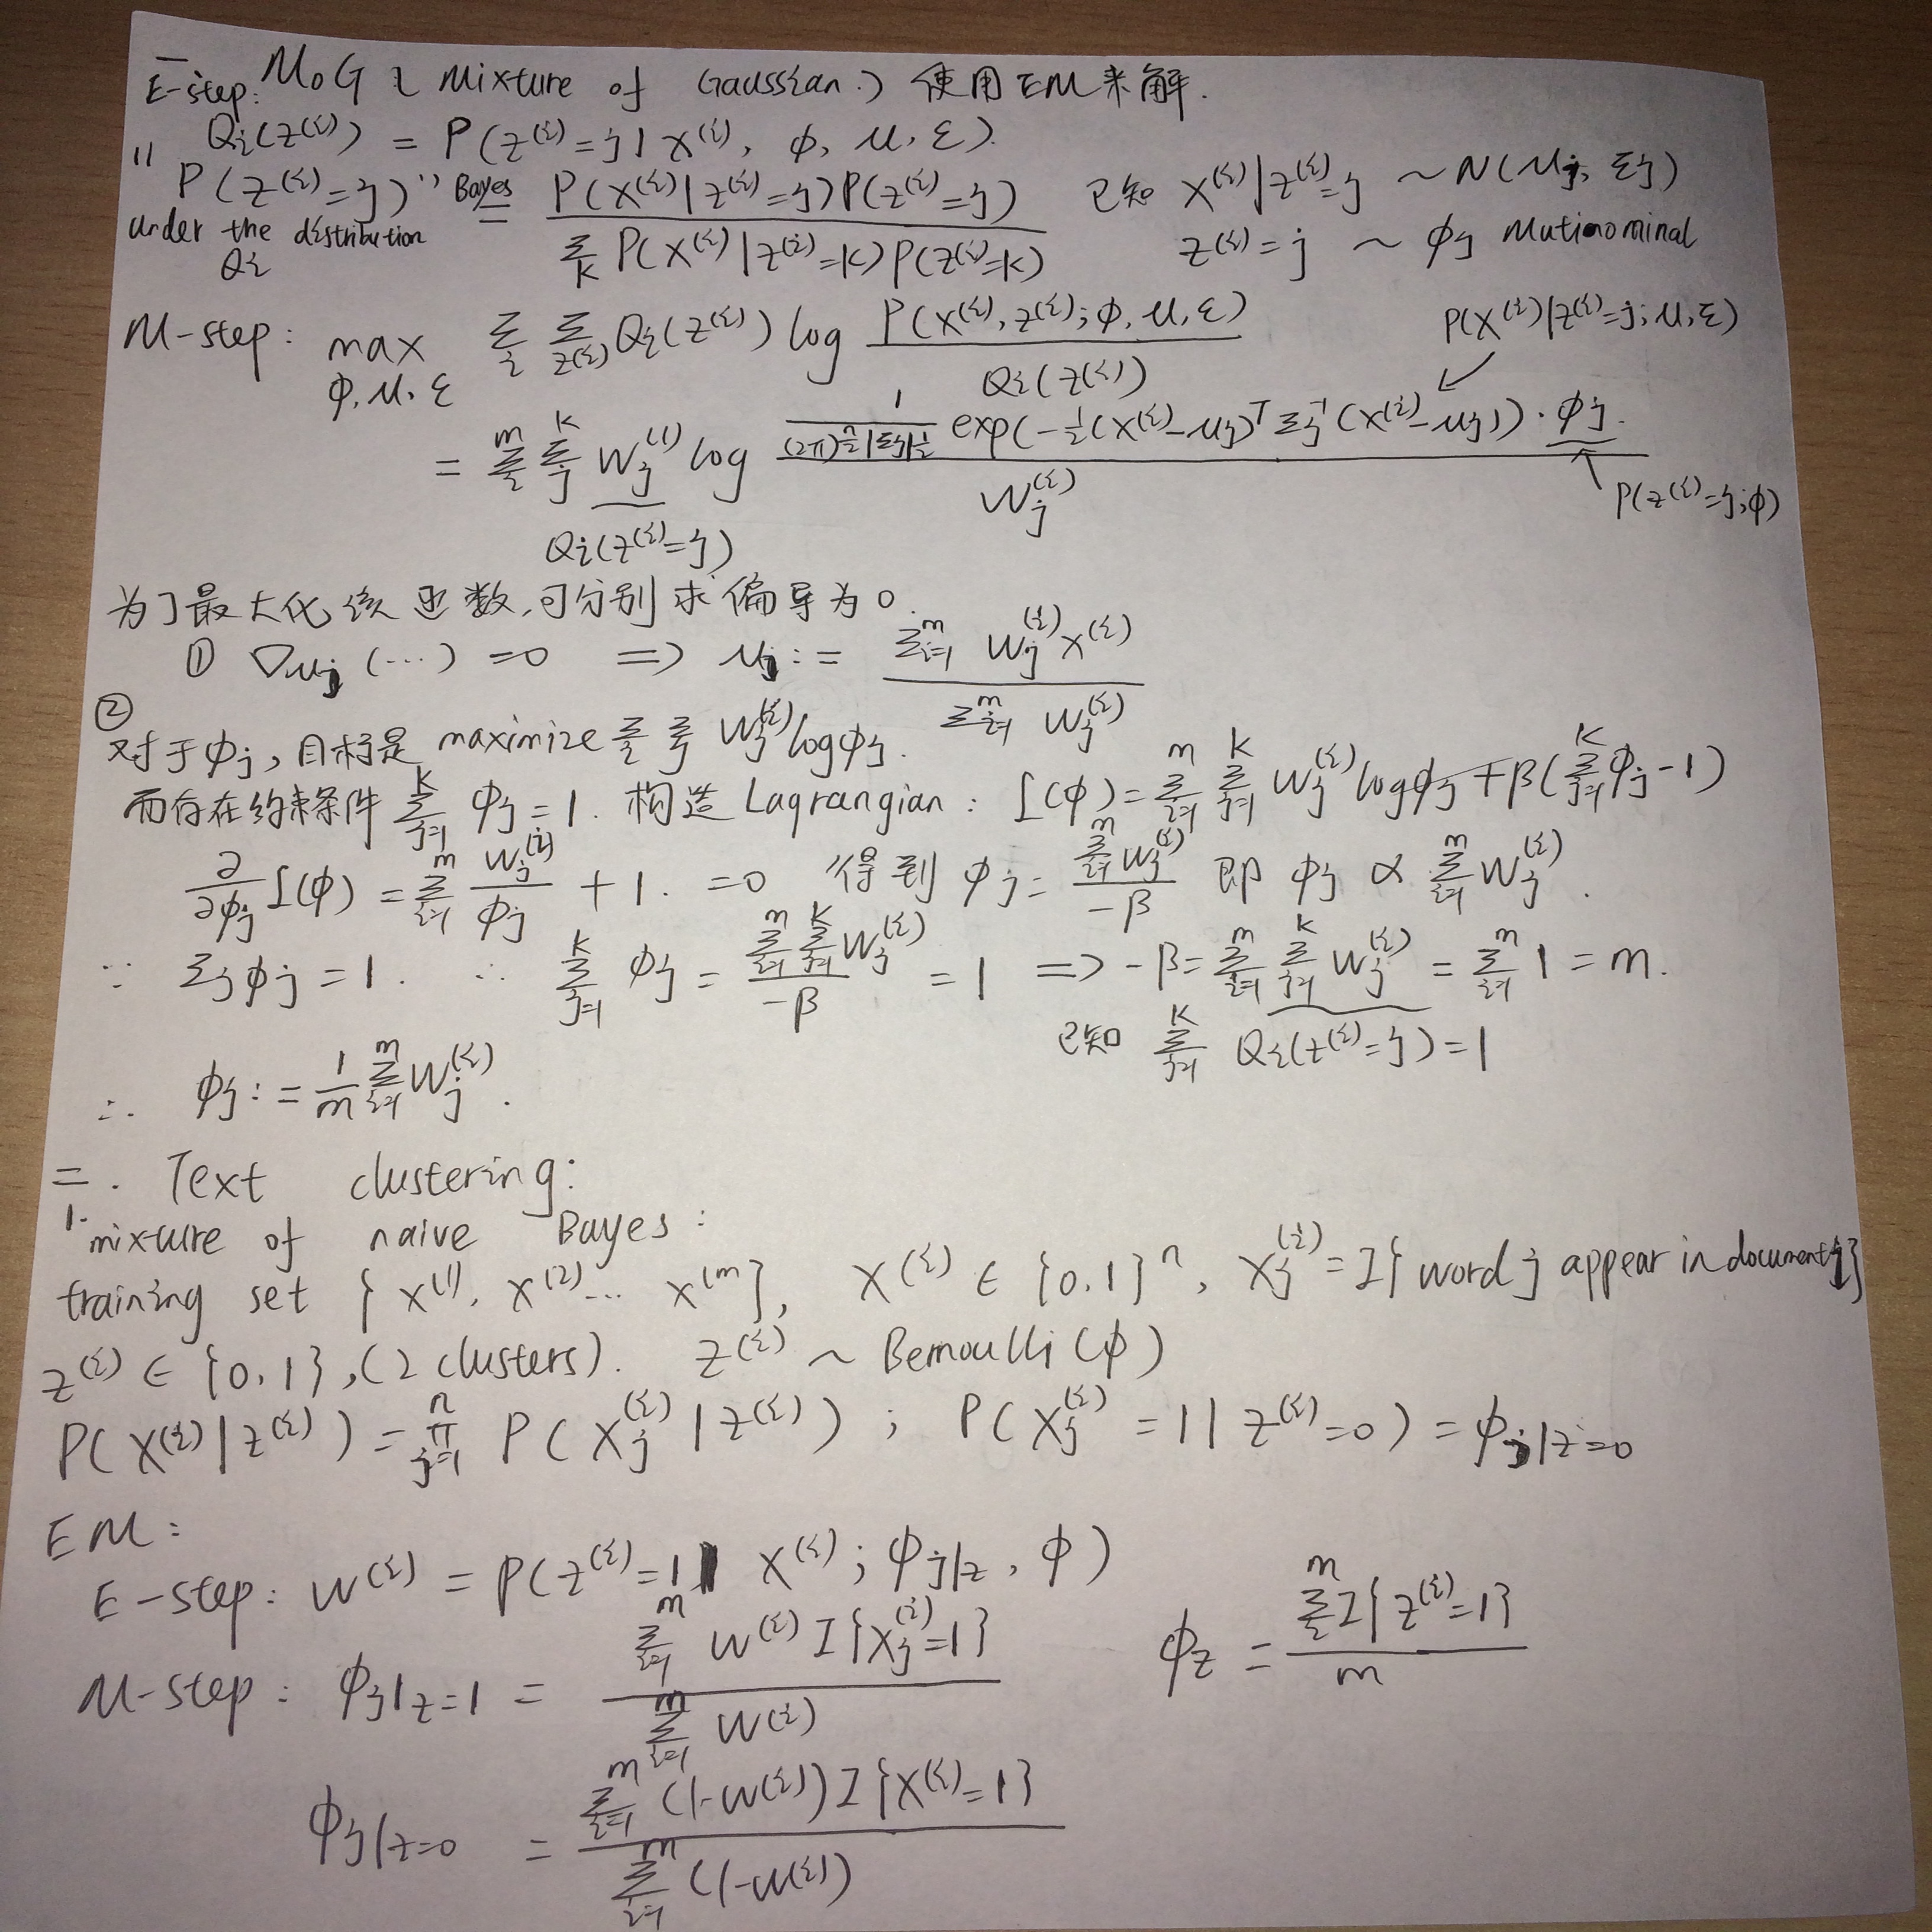 一 MoG (Mixture of Gaussian.) 使用EM来解.
E-step:
Qi(z^(i)) = P(z^(i)=j|x^(i), φ, μ, Σ).
"P(z^(i)=j)" Bayes = P(x^(i)|z^(i)=j)P(z^(i)=j) / Σ_k P(x^(i)|z^(i)=k)P(z^(i)=k) 已知 x^(i)|z^(i)=j ~ N(μj, Σj)
under the distribution Qi z^(i)=j ~ φj Mutinominal
M-step: max_{φ,μ,Σ} Σ_i Σ_{z^(i)} Qi(z^(i)) log P(x^(i), z^(i); φ, μ, Σ) / Qi(z^(i)) P(x^(i)|z^(i)=j; μ, Σ)
= Σ_i^m Σ_j^k Wj^(i) log 1/((2π)^(n/2)|Σj|^(1/2)) exp(-1/2(x^(i)-μj)^T Σj^-1 (x^(i)-μj)) · φj. / Wj^(i)
Qi(z^(i)=j) P(z^(i)=j; φ)
为了最大化该函数,可分别求偏导为0.
① ∇μj (...) =0 => μj := Σ_{i=1}^m Wj^(i) x^(i) / Σ_{i=1}^m Wj^(i)
②
对于φj, 目标是 maximize Σ_i Σ_j Wj^(i) logφj.
而存在约束条件 Σ_{j=1}^k φj = 1. 构造Lagrangian: L(φ) = Σ_{i=1}^m Σ_{j=1}^k Wj^(i) logφj + β(Σ_{j=1}^k φj - 1)
∂/∂φj L(φ) = Σ_{i=1}^m Wj^(i)/φj + 1. =0 得到 φj = Σ_{i=1}^m Wj^(i) / -β 即 φj ∝ Σ_{i=1}^m Wj^(i).
∵ Σj φj = 1. ∴ Σ_{j=1}^k φj = Σ_{i=1}^m Σ_{j=1}^k Wj^(i) / -β = 1 => -β = Σ_{i=1}^m Σ_{j=1}^k Wj^(i) = Σ_{i=1}^m 1 = m.
已知 Σ_{j=1}^k Qi(z^(i)=j) = 1
∴ φj := 1/m Σ_{i=1}^m Wj^(i).
二. Text clustering:
1. mixture of naive Bayes:
training set {x^(1), x^(2)... x^(m)}, x^(i) ∈ {0,1}^n, xj^(i) = I{word j appear in document i}
z^(i) ∈ {0,1}, (2 clusters). z^(i) ~ Bernoulli(φ)
P(x^(i)|z^(i)) = Π_{j=1}^n P(xj^(i)|z^(i)); P(xj^(i)=1|z^(i)=0) = φj|z=0
EM:
E-step: W^(i) = P(z^(i)=1| x^(i); φj|z, φ)
M-step: φj|z=1 = Σ_{i=1}^m W^(i) I{xj^(i)=1} / Σ_{i=1}^m W^(i) φz = Σ_i^m I{z^(i)=1} / m
φj|z=0 = Σ_{i=1}^m (1-W^(i)) I{x^(i)=1} / Σ_{i=1}^m (1-W^(i))